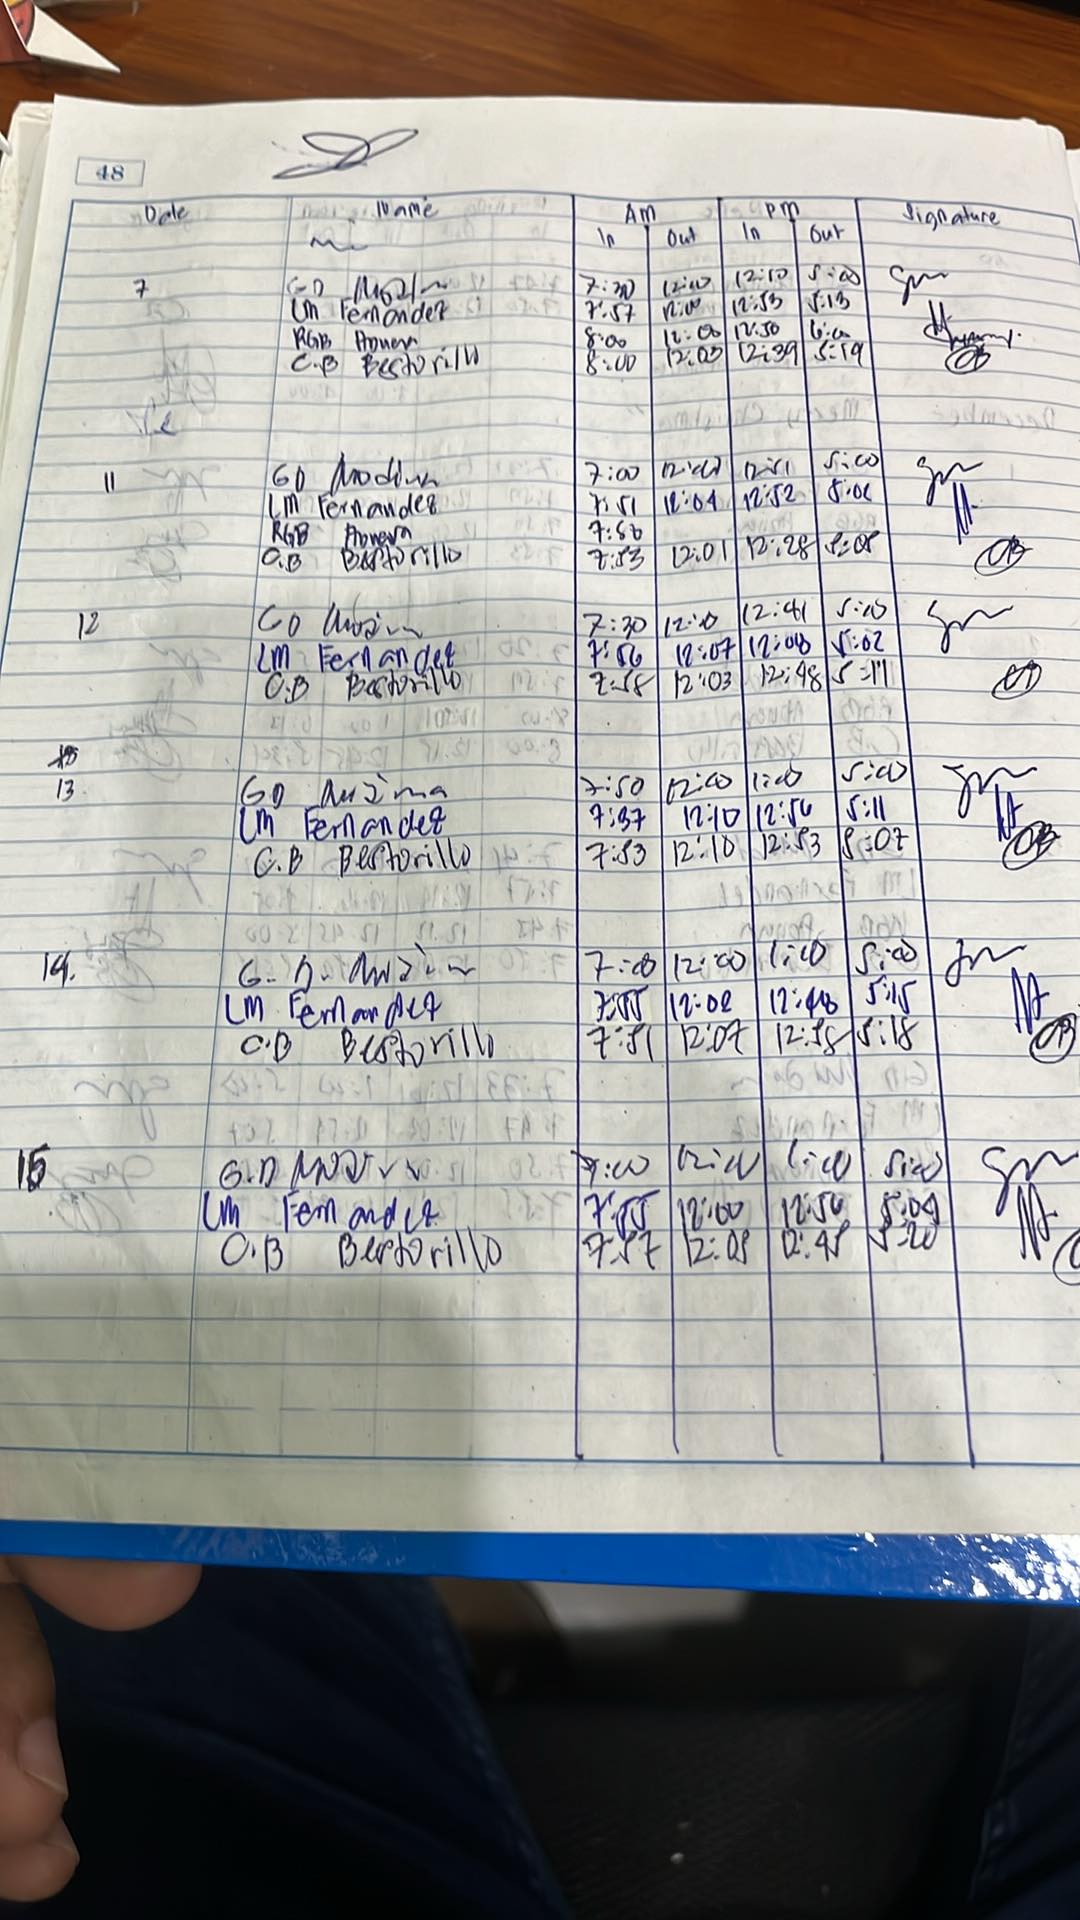 48
Date Name AM PM Signature
In Out In Out
7 GD 7:30 12:00 12:50 5:00
LM Fernandez 7:57 12:00 12:53 5:13
RGB 8:00 12:00 12:30
C.B Bestorillo 8:00 12:03 12:39 5:19
11 GD 7:00 12:00 12:51 5:00
LM Fernandez 7:51 12:04 12:52
RGB
C.B Bestorillo 7:53 12:01 12:28 5:08
12 GD 7:30 12:00 12:41 5:00
LM Fernandez 7:56 12:07 12:08 5:02
C.B Bestorillo 7:58 12:03 12:48 5:11
13 GD 7:50 12:00 1:00 5:00
LM Fernandez 7:37 12:10 12:56 5:11
C.B Bestorillo 7:53 12:10 12:53 5:07
14. G.D. 7:00 12:00 1:00 5:00
LM Fernandez 7:55 12:02 12:48 5:15
C.B Bestorillo 7:51 12:07 12:58 5:18
15 G.D 7:00 12:00 1:00 5:00
LM Fernandez 7:55 12:00 12:56 5:09
C.B Bestorillo 7:57 12:08 12:45 5:20